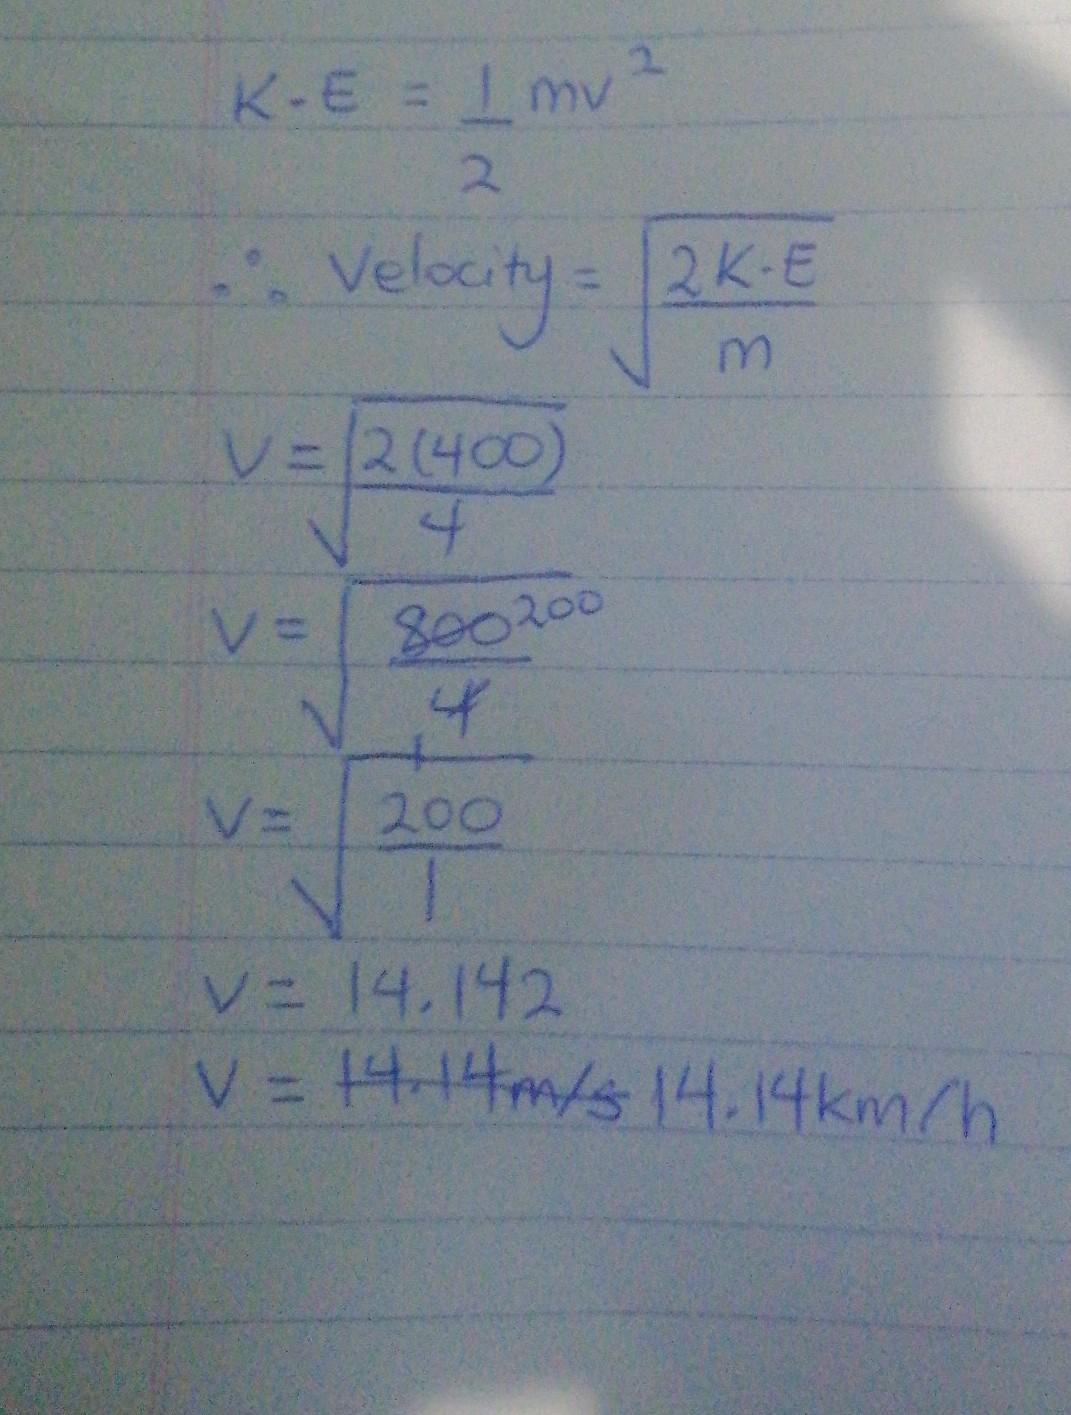 K.E = 1/2 mv²
∴ Velocity = √(2K.E/m)
V = √(2(400)/4)
V = √(800 200/4 1)
V = √(200/1)
V = 14.142
V = 14.14m/s 14.14km/h